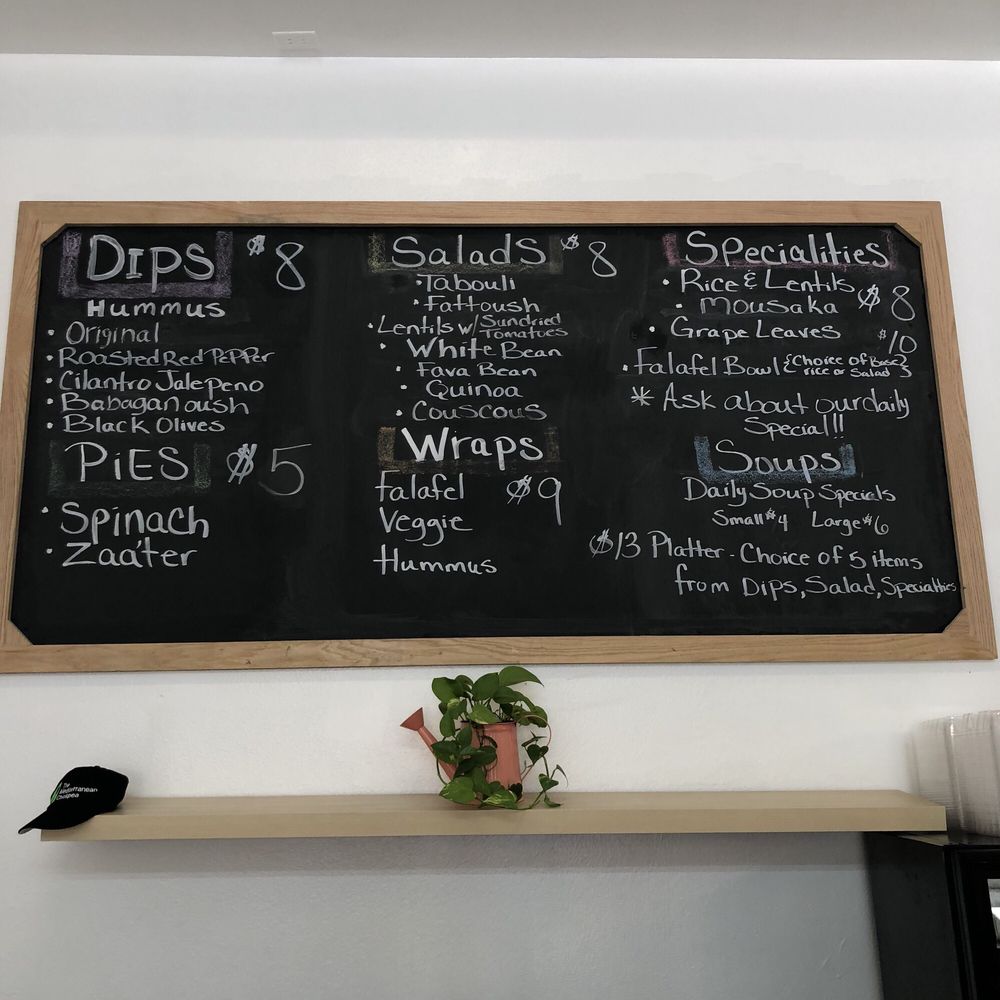 Dips $8
Hummus
• Original
• Roasted Red Pepper
• Cilantro Jalepeno
• Babaganoush
• Black Olives
PiES $5
• Spinach
• Zaa'ter
Salads $8
• Tabouli
• Fattoush
• Lentils w/ Sundried Tomatoes
• White Bean
• Fava Bean
• Quinoa
• Couscous
Wraps
Falafel $9
Veggie
Hummus
Specialities
• Rice & Lentils
• Mousaka $8
• Grape Leaves
$10
• Falafel Bowl {Choice of Base rice or Salad}
* Ask about our daily
Special!!
Soups
Daily Soup Specials
Small $4 Large $6
$13 Platter - Choice of 5 items
from Dips, Salad, Specialties
The
Mediterranean
Chickpea